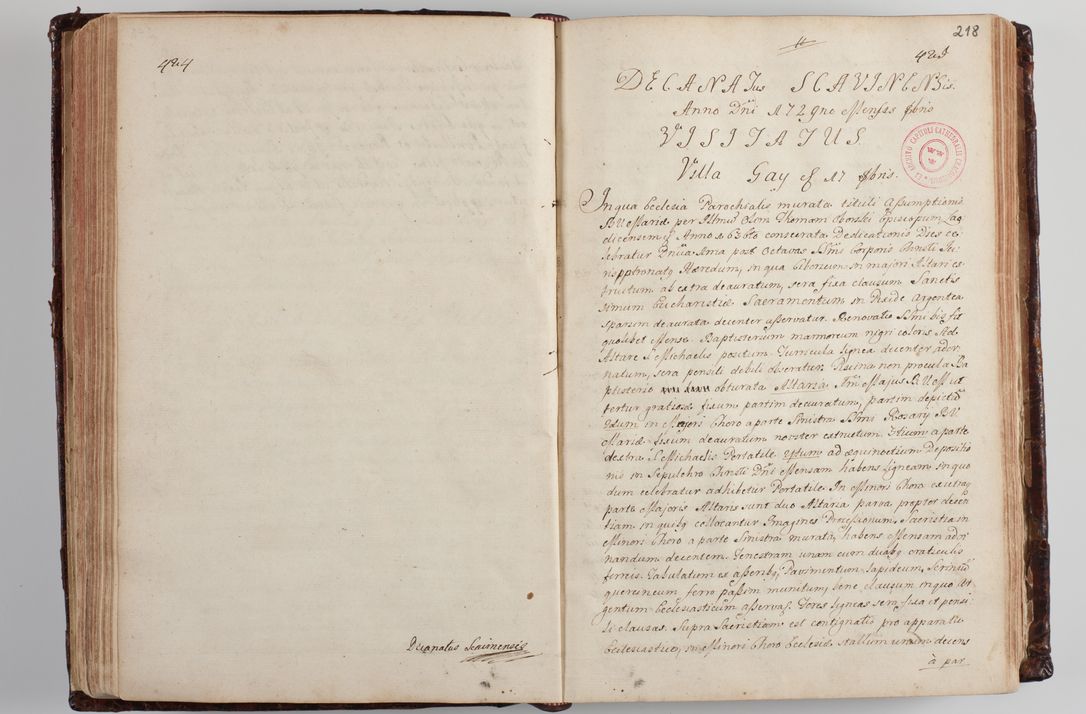 424
Decanatus Scavinensis
218
425
DECANATus SCAVINENSis.
Anno Dni 1729no Mense 8bris
VISITATUS
Villa Gay 17 8bris.
In qua Ecclesia Parochialis murata tituli Assumptionis
B.V. Mariæ per Illmu Thomam Oborski Episcopum Lao
dicensem Anno 1636to consecrata Dedicationis Dies ce
lebratur Dnica post Octavas SSmi Corporis Christi Ju
rispptronatq Hæredum, in qua Ciborium in majori Altari ex
tructum ab extra deauratum, sera fixa clausum Sanctis
simum Eucharistiæ Sacramentum in Pixide Argentea
sparsim deaurata decenter asservatur. Renovatio SSmi bis fit
quolibet Mense. Baptisterium marmoreum nigri coloris
Altare S. Michaelis positum. Turricula lignea decenter ador
natum, sera pensili debili obseratur. Piscina non procul a Ba
ptisterio obturata Altaria. Majus B.V.M. ut
fertur gratiosæ fixum partim deauratum, partim depictum
2dum in Majori Choro a parte Sinistra SSmi Rosarij B.V.
Mariæ fixum deauratum noviter extructum. 3tium a parte
dextra S. Michaelis Portatile 4tum ad æquinoctium Depositio
nis in Sepulchro Christi Dni Mensam habens ligneam in quo
dum celebratur adhibetur Portatile. In Minori Choro ex utraq
parte Majoris Altaris sunt duo Altaria parva propter decen
tiam in quibq collocantur Imagines Processionum, Sacristia in
Minori Choro a parte Sinistra murata, habens Mensam ador
nandum decentem. Fenestram unam cum duabq craticulis
ferreis. Tabulatum ex asseribq, Pavimentum Lapideum, Scrinium
quercineum ferro passim munitum, bene clausum in quo Ar
gentum Ecclesiasticum asservat. Fores ligneas sera fixa et pensi
li clausas. Supra Sacristiam est contignatio pro apparatu
Ecclesiastico, in Minori Choro Ecclesiæ Stallum unum decens
à par